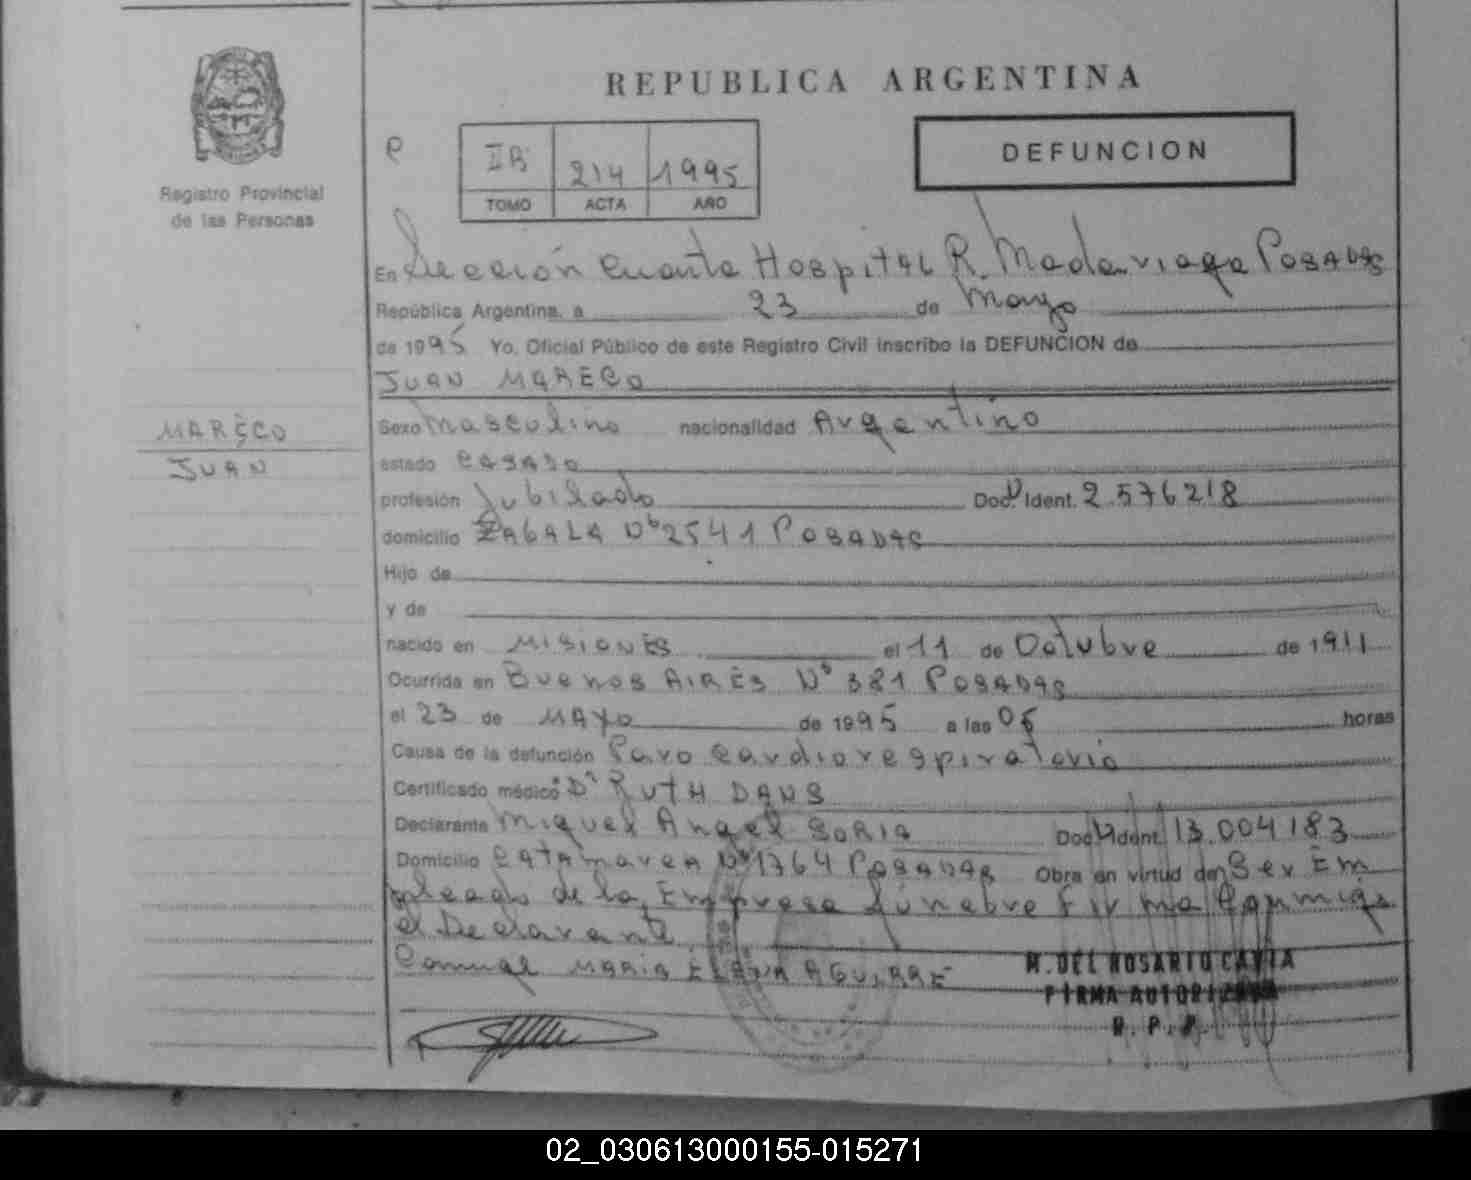 REPUBLICA ARGENTINA
DEFUNCION
Registro Provincial
de las Personas
IIB 214 1995
TOMO ACTA AÑO
En Sección Cuarta Hospital R. Madariaga POSADAS
República Argentina, a 23 de Mayo
de 1995 Yo, Oficial Público de este Registro Civil inscribo la DEFUNCION de
JUAN MARECO
MARECO
JUAN
Sexo Masculino nacionalidad Argentino
estado CASADO
profesión Jubilado Doc. Ident. 2.576218
domicilio ZAGALA Nº 2541 POSADAS
Hijo de
y de
nacido en MISIONES el 11 de Octubre de 1911
Ocurrida en BUENOS AIRES Nº 381 POSADAS
el 23 de MAYO de 1995 a las 06 horas
Causa de la defunción Paro Cardiorespiratorio
Certificado médico Dª RUTH DANS
Declarante Miguel Angel SORIA Doc. Ident. 13.004183
Domicilio CATAMARCA Nº 1764 POSADAS Obra en virtud de Ser Em
pleado de la Empresa Fúnebre Firma Conmigo
el Declarante
Conyuge MARIA ELENA AGUIRRE
M. DEL ROSARIO CAVIA
FIRMA AUTORIZADA
R. P. P.
02_030613000155-015271